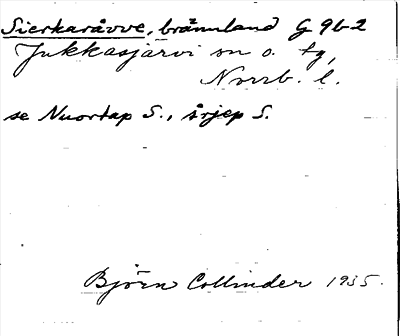 Sierkaråvve, brännland G 9b2
Jukkasjärvi sn o. tg,
Norrb. l.
se Nuortap S., årjep S.
Björn Collinder 1935.